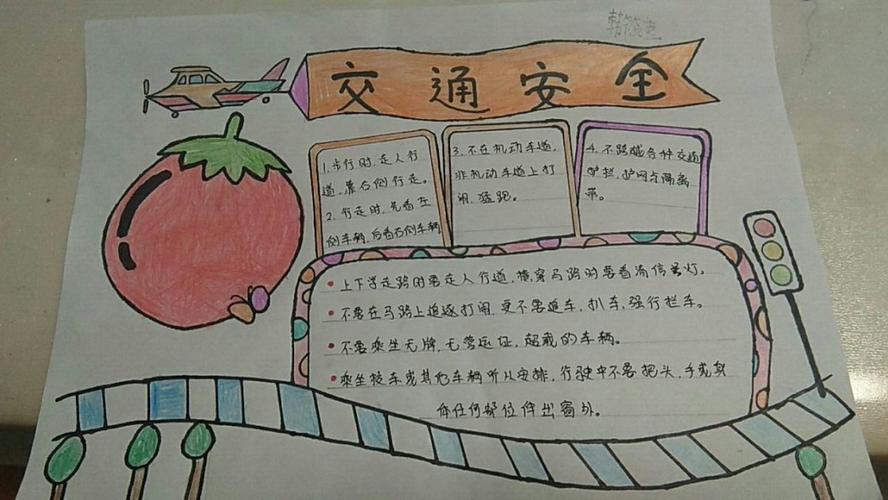 交通安全
1.步行时,走人行
道,靠右侧行走。
2.行走时,先看左
侧车辆,后看右侧车辆
3.不在机动车道,
非机动车道上打
闹,猛跑。
4.不跨越各种交通
护栏,护网与隔离
带。
上下学走路时要走人行道,横穿马路时要看清信号灯。
不要在马路上追逐打闹,更不要追车,扒车,强行拦车。
不要乘坐无牌,无营运证,超载的车辆。
乘坐校车或其他车辆听从安排,行驶中不要把头,手或身
体任何部位伸出窗外。